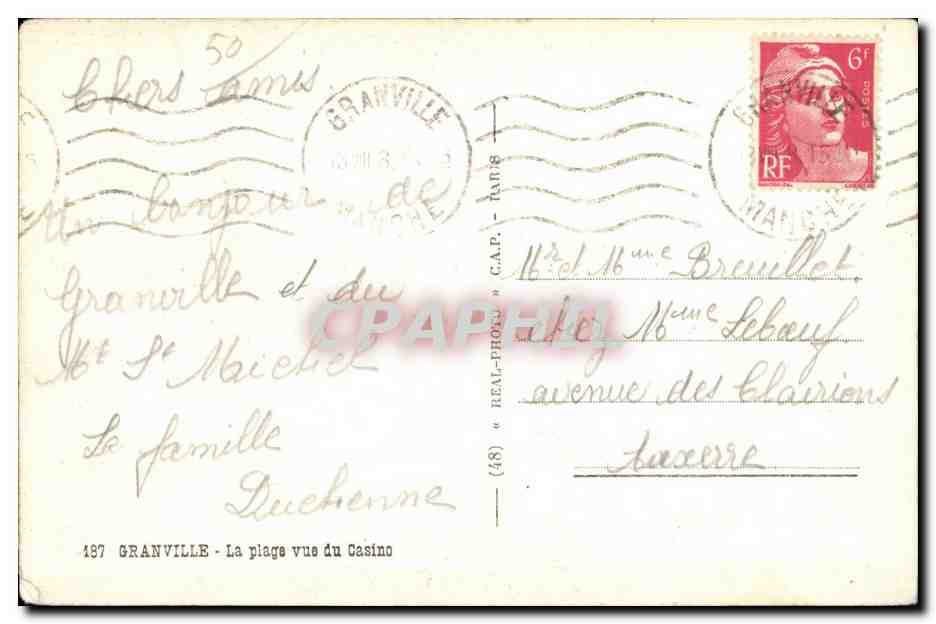 50
Chers amis
GRANVILLE
MANCHE
Un bonjour de
Granville et du
Mt St Maichel
La famille
Duchenne
187 GRANVILLE - La plage vue du Casino
(48) « REAL-PHOTO » C.A.P. - PARIS
6F
POSTES
RF
GRANVILLE
MANCHE
Mr et Mme Breuillet
chez Mme Leboeuf
avenue des Clairions
Auxerre
CPAPHIL